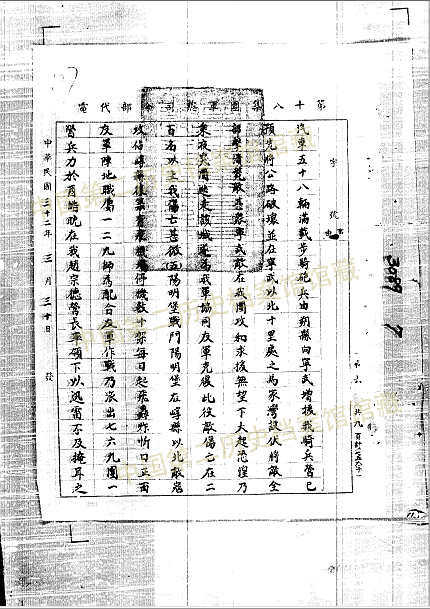 第十八集團軍總司令部代電
字 號
第六 共九頁
汽車五十八輛滿載步騎砲兵由朔縣向寧武增援我騎兵營已
預先將公路破壞並在寧武以北十里處之馬家灣設伏將敵全
部擊潰寧武敵在我圍攻和求援無望下大起恐慌乃
乘夜突圍逃該城遂為我軍協同友軍克復此役敵傷亡在二
百名以上我傷亡甚微 陽明堡戰鬥 陽明堡在崞縣以北敵寇
攻佔崞縣後 機數十架每日起飛轟炸忻口正面
友軍陣地職屬一二九師為配合友軍作戰乃派出七六九團一
營兵力於 皓晚在我趙宗德營長率領下以迅雷不及掩耳之
中華民國三十二年三月三十日 發
3089
7
中国第二历史档案馆馆藏
中国第二历史档案馆馆藏